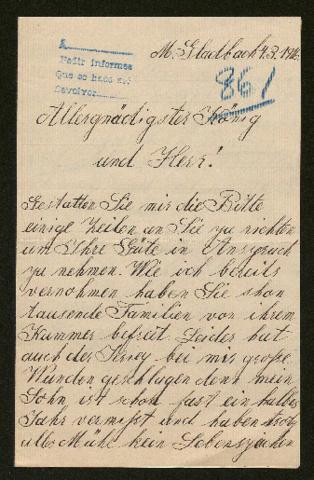 A
Pedir informes
Que se hace así
Devolver
M. Gladbach 4.3.1916.
861
Allergnädigster König
und Herr!
Gestatten Sie mir die Bitte
einige Zeilen an Sie zu richten
um Ihre Güte in Anspruch
zu nehmen. Wie ich bereits
vernohmen haben Sie shon
tausende Familien von ihrem
Kummer befreit. Leider hat
auch der Krieg bei mir große
Wunden geschlagen denn mein
Sohn ist schon fast ein halbes
Jahr vermißt und haben trotz
alle Mühe kein Lebenszeichen